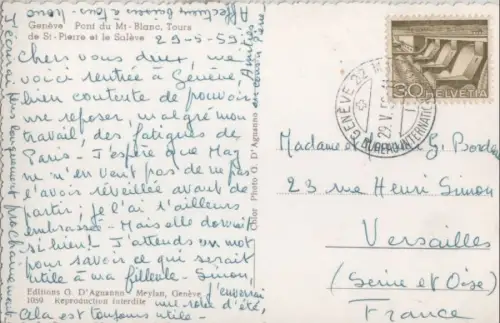 Genève Pont du Mt-Blanc, Tours
de St-Pierre et le Salève
29-5-59.
Chers vous deux, me
voici rentrée à Genève
bien contente de pouvoir
me reposer, malgré mon
travail, des fatigues de
Paris - J'espère que Mag
ne m'en veut pas de ne pas
l'avois réveillée avant de
partir; je l'ai d'ailleurs
embrassée - Mais elle dormait
si bien! J'attends un mot
pour savoir ce qui serait
utile à ma filleule - Sinon,
j'enverrai
une robe d'été,
Cela est toujours utile -
J'écrirai plus longuement prochainement
Affectueux baisers à tous
Editions G. D'Aguanno Meylan, Genève
1059 Reproduction interdite
Chlor Photo G. D'Aguanno
30 HELVETIA
GENÈVE 22
29.V.59
Madame et G. Borde
23 rue Henri Simon
Versailles
(Seine et Oise)
France